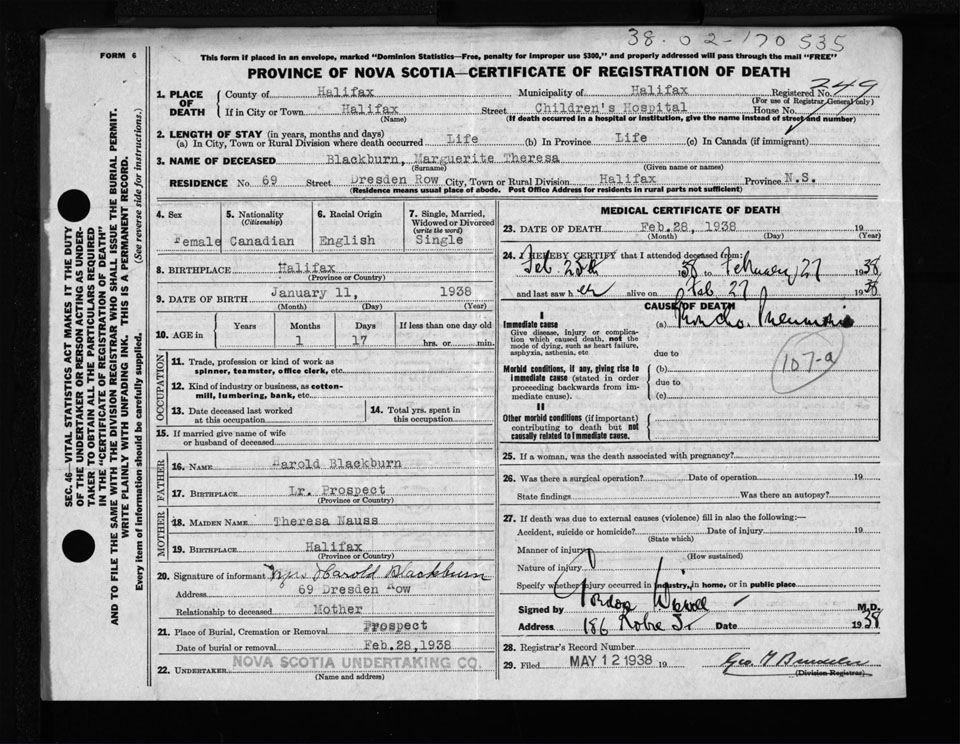 38-02-170535
FORM 6
This form if placed in an envelope, marked "Dominion Statistics—Free, penalty for improper use $300," and properly addressed will pass through the mail "FREE"
PROVINCE OF NOVA SCOTIA—CERTIFICATE OF REGISTRATION OF DEATH
1. PLACE OF DEATH
County of Halifax Municipality of Halifax Registered No. 349
(For use of Registrar General only)
If in City or Town Halifax Street Children's Hospital House No.
(Name) (If death occurred in a hospital or institution, give the name instead of street and number)
2. LENGTH OF STAY (in years, months and days)
(a) In City, Town or Rural Division where death occurred Life (b) In Province Life (c) In Canada (if immigrant)
3. NAME OF DECEASED Blackburn, Marguerite Theresa
(Surname) (Given name or names)
RESIDENCE No. 69 Street Dresden Row City, Town or Rural Division Halifax Province N.S.
(Residence means usual place of abode. Post Office Address for residents in rural parts not sufficient)
4. Sex
Female
5. Nationality
(Citizenship)
Canadian
6. Racial Origin
English
7. Single, Married, Widowed or Divorced
(write the word)
Single
8. BIRTHPLACE Halifax
(Province or Country)
9. DATE OF BIRTH January 11, 1938
(Month) (Day) (Year)
10. AGE in
Years Months Days If less than one day old
1 17 hrs. or min.
OCCUPATION
11. Trade, profession or kind of work as
spinner, teamster, office clerk, etc.
12. Kind of industry or business, as cotton-
mill, lumbering, bank, etc.
13. Date deceased last worked
at this occupation
14. Total yrs. spent in
this occupation
15. If married give name of wife
or husband of deceased
FATHER
16. NAME Harold Blackburn
17. BIRTHPLACE Lr. Prospect
(Province or Country)
MOTHER
18. MAIDEN NAME Theresa Nauss
19. BIRTHPLACE Halifax
(Province or Country)
20. Signature of informant Mrs Harold Blackburn
Address 69 Dresden Row
Relationship to deceased Mother
21. Place of Burial, Cremation or Removal Prospect
Date of burial or removal Feb.28,1938
22. UNDERTAKER NOVA SCOTIA UNDERTAKING CO.
(Name and address)
MEDICAL CERTIFICATE OF DEATH
23. DATE OF DEATH Feb.28, 1938 19
(Month) (Day) (Year)
24. I HEREBY CERTIFY that I attended deceased from:
Feb. 25th 1938 to February 27 1938
and last saw her alive on Feb 27 1938
CAUSE OF DEATH
I
Immediate cause (a) Broncho. Pneumonia
Give disease, injury or complica-
tion which caused death, not the
mode of dying, such as heart failure,
asphyxia, asthenia, etc
due to
107-a
Morbid conditions, if any, giving rise to
immediate cause (stated in order
proceeding backwards from im-
mediate cause).
(b)
due to
(c)
II
Other morbid conditions (if important)
contributing to death but not
causally related to immediate cause.
25. If a woman, was the death associated with pregnancy?
26. Was there a surgical operation? Date of operation 19
State findings Was there an autopsy?
27. If death was due to external causes (violence) fill in also the following:—
Accident, suicide or homicide? Date of injury 19
(State which)
Manner of injury
(How sustained)
Nature of injury
Specify whether injury occurred in industry, in home, or in public place
Signed by Gordon M.D.
Address 186 Robie St Date 1938
28. Registrar's Record Number
29. Filed MAY 12 1938 19 Geo
(Division Registrar)
SEC. 46—VITAL STATISTICS ACT MAKES IT THE DUTY
OF THE UNDERTAKER OR PERSON ACTING AS UNDER-
TAKER TO OBTAIN ALL THE PARTICULARS REQUIRED
IN THE "CERTIFICATE OF REGISTRATION OF DEATH"
AND TO FILE THE SAME WITH THE DIVISION REGISTRAR WHO SHALL ISSUE THE BURIAL PERMIT.
WRITE PLAINLY WITH UNFADING INK. THIS IS A PERMANENT RECORD.
Every item of information should be carefully supplied. (See reverse side for instructions.)